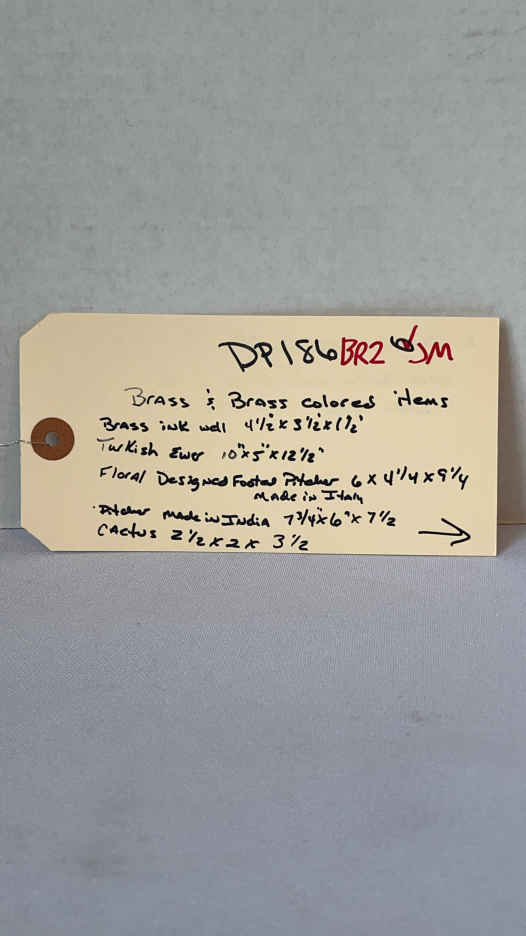 DP186BR2 6 JM
Brass & Brass colored items
Brass ink well 4 1/2" x 3 1/2" x 1 1/2"
Turkish Ewer 10" x 5" x 12 1/2"
Floral Designed Footed Pitcher 6 x 4 1/4 x 9 1/4
made in Italy
Pitcher made in India 7 3/4" x 6" x 7 1/2
Cactus 2 1/2 x 2 x 3 1/2